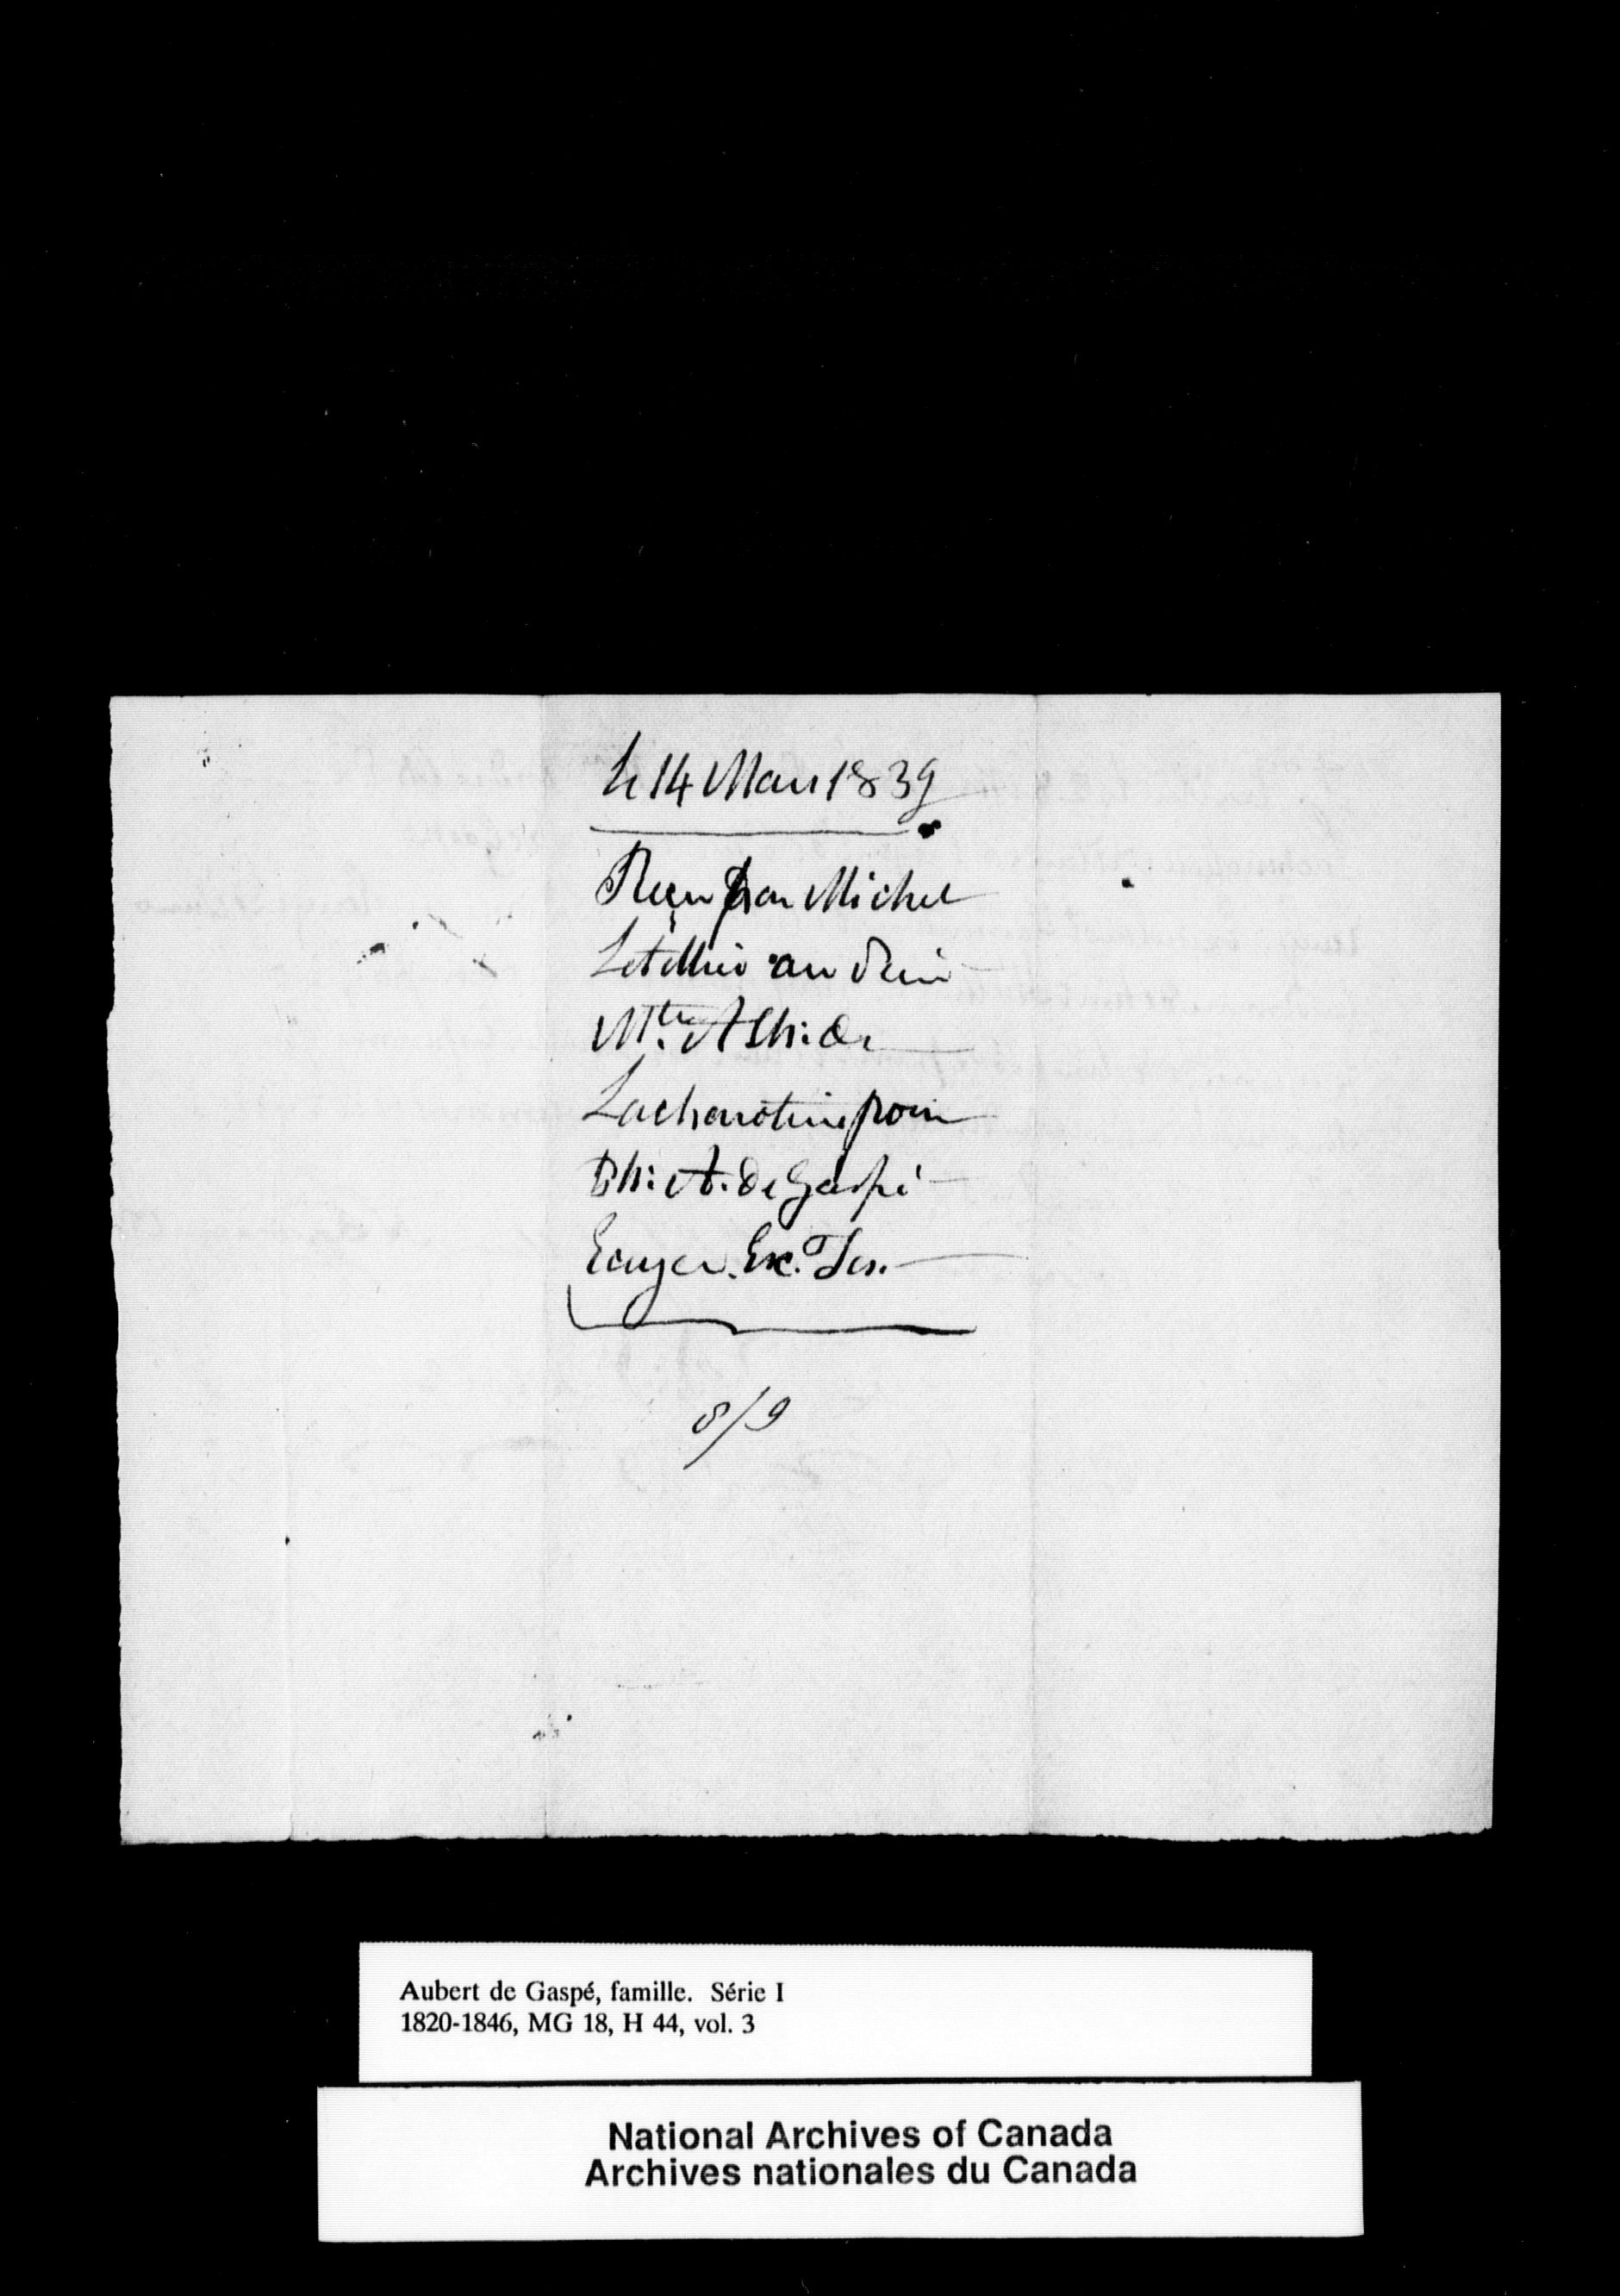 Le 14 Mars 1839
Reçu par Michel
Letellier au
Lachenotiere pour
Ph: A. de Gaspé
Ecuyer. Ex. Tes.
8/9
Aubert de Gaspé, famille. Série I
1820-1846, MG 18, H 44, vol. 3
National Archives of Canada
Archives nationales du Canada